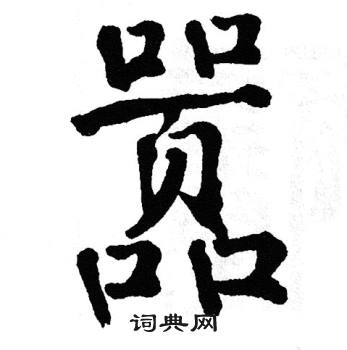 嚣
词典网